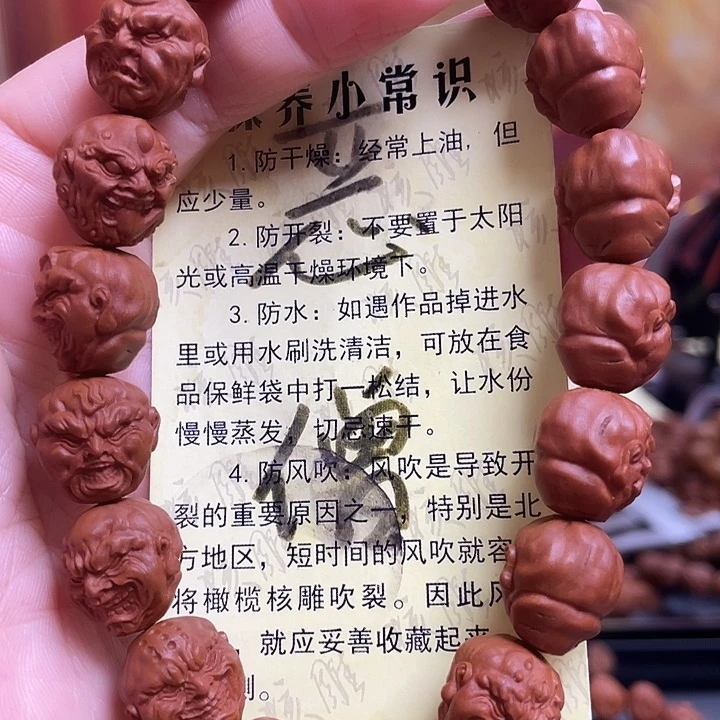 养小常识
1. 防干燥：经常上油，但
应少量。
2. 防开裂：不要置于太阳
光或高温干燥环境下。
3. 防水：如遇作品掉进水
里或用水刷洗清洁，可放在食
品保鲜袋中打一松结，让水份
慢慢蒸发，切忌速干。
4. 防风吹：风吹是导致开
裂的重要原因之一，特别是北
方地区，短时间的风吹就容
将橄榄核雕吹裂。因此风
，就应妥善收藏起来
。
恶
僧